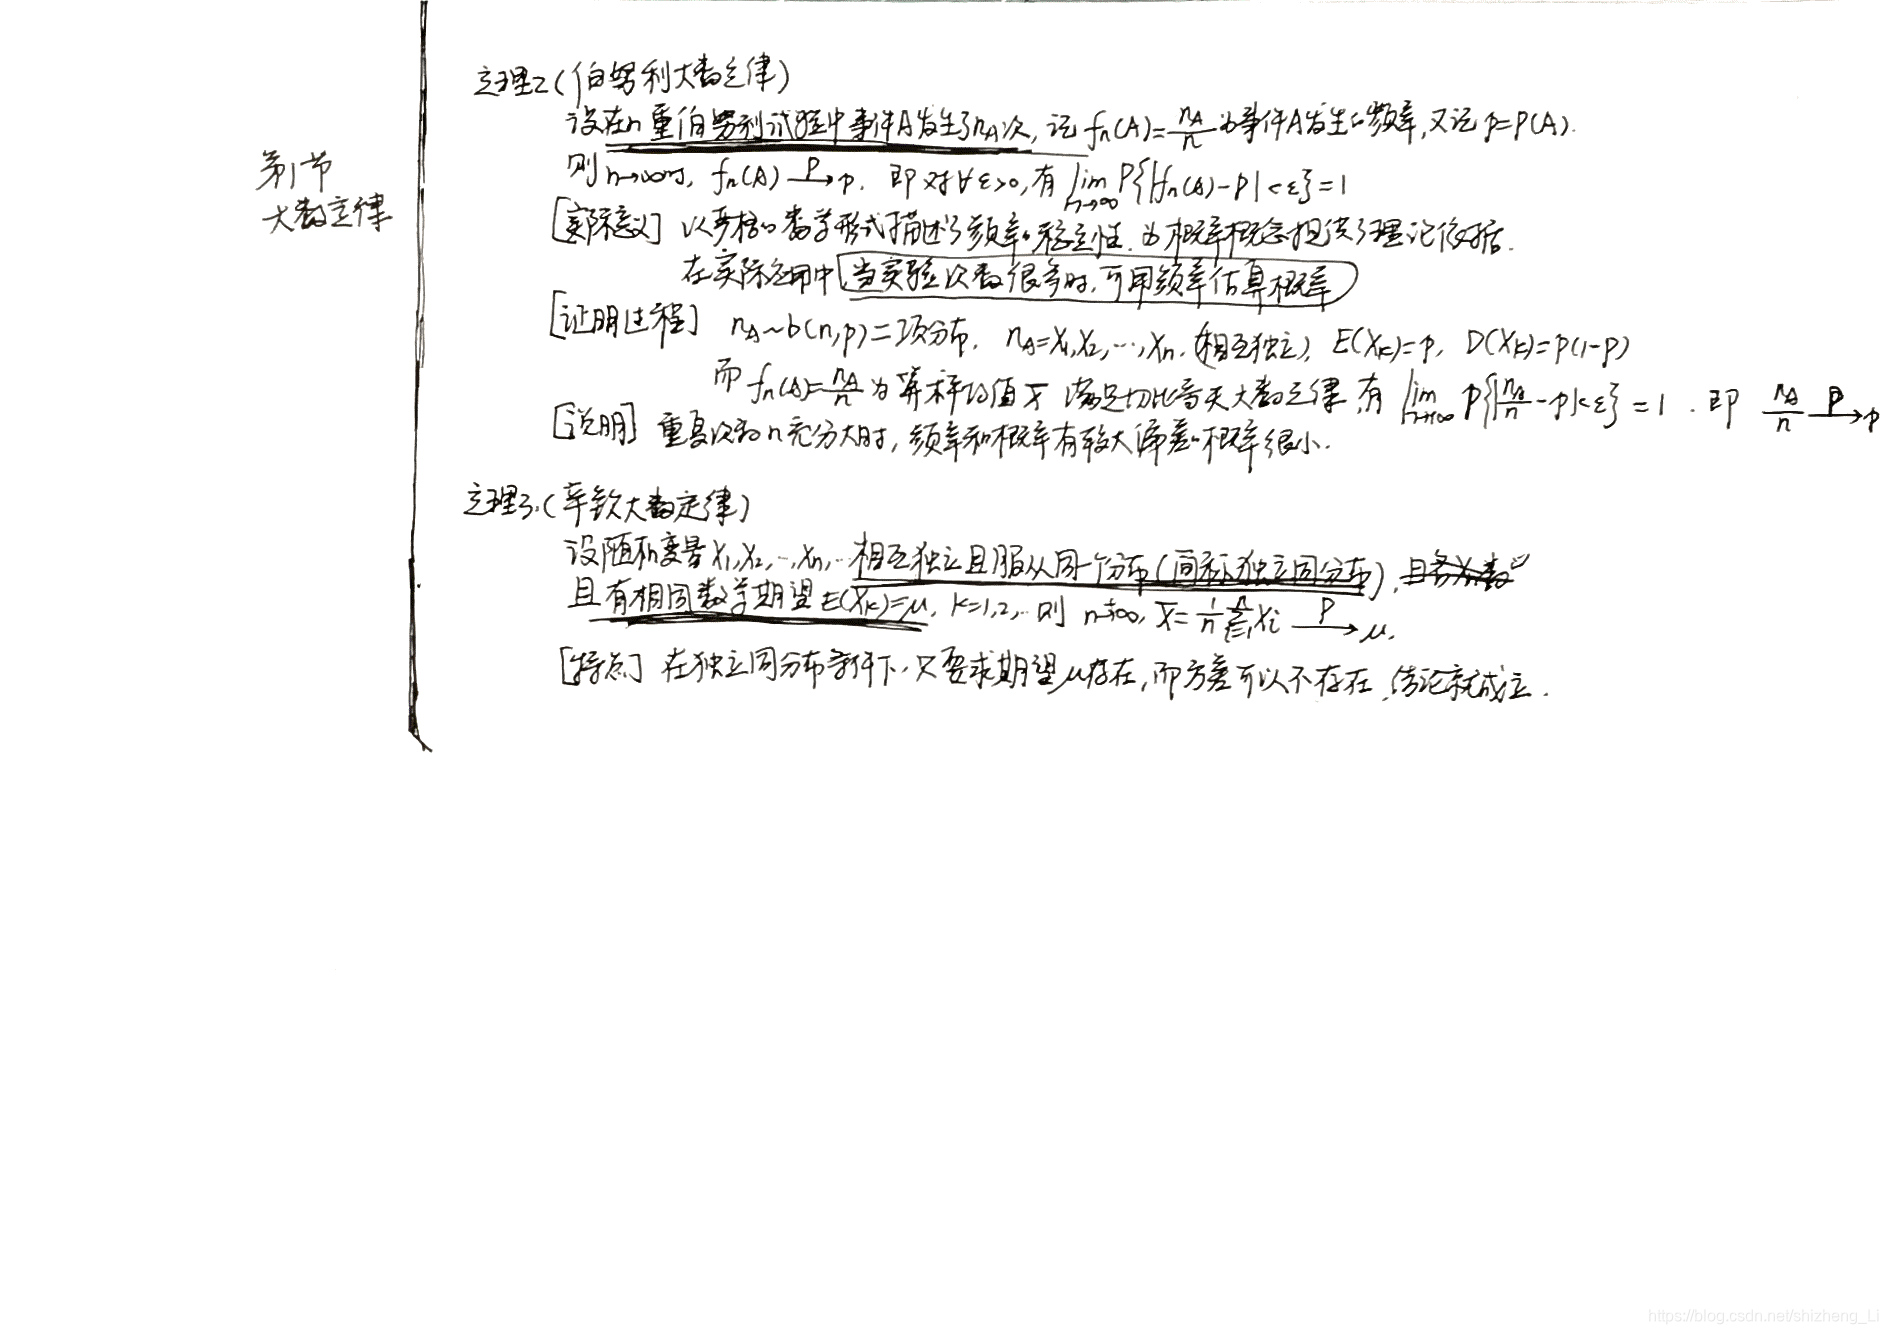 第1节
大数定律
定理2(伯努利大数定律)
设在n重伯努利试验中事件A发生了nA次, 记 fn(A)=nA/n 为事件A发生的频率, 又记 p=P(A).
则 n→∞时, fn(A) —P→ p. 即对∀ε>0, 有 lim n→∞ P{|fn(A)-p|<ε}=1
[实际意义] 以严格的数学形式描述了频率的稳定性. 为概率概念提供了理论依据.
在实际应用中 当实验次数很多时, 可用频率估算概率
[证明过程] nA~b(n,p)二项分布. nA=X1,X2,…,Xn. (相互独立), E(Xk)=p, D(Xk)=p(1-p)
而 fn(A)=nA/n 为算术均值 X̄ 满足切比雪夫大数定律, 有 lim n→∞ P{|nA/n-p|<ε}=1. 即 nA/n —P→ p
[说明] 重复次数n充分大时, 频率和概率有较大偏差的概率很小.
定理3.(辛钦大数定律)
设随机变量 X1,X2,…,Xn,… 相互独立且服从同一个分布(简称独立同分布),
且有相同数学期望 E(Xk)=μ, k=1,2,… 则 n→∞, X̄=1/n Σ i=1 n Xi —P→ μ.
[特点] 在独立同分布条件下, 只要求期望μ存在, 而方差可以不存在, 结论就成立.
https://blog.csdn.net/shizheng_Li